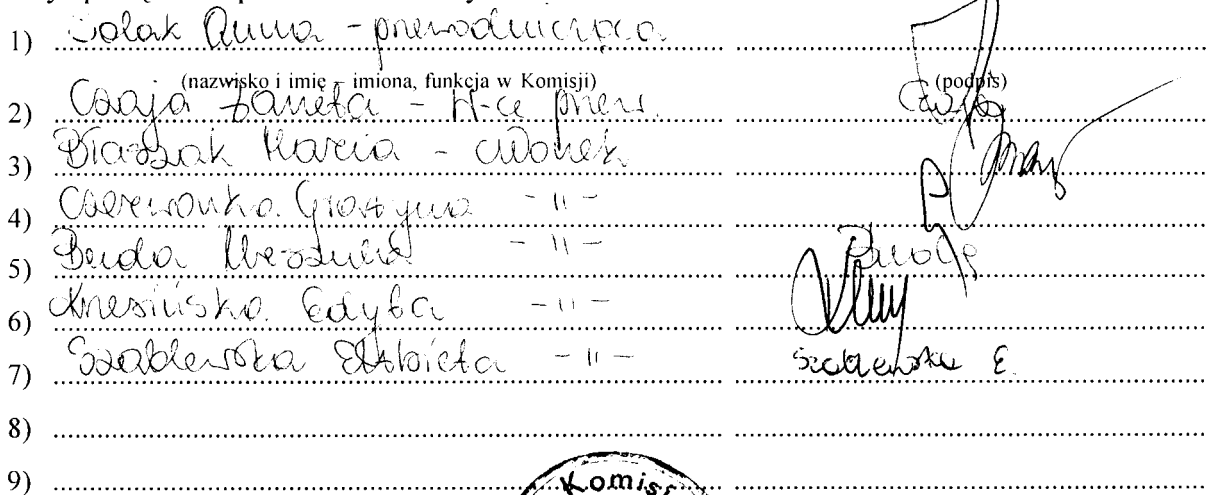 1) Solak Anna - przewodnicząca
(nazwisko i imię – imiona, funkcja w Komisji) (podpis)
2) Czaja Żaneta - V-ce przew. Czaja
3) Błaszak Maria - członek
4) Czerwonka Grażyna - 11 -
5) Benda Urszula - 11 - Benda
6) Kresińska Edyta - 11 -
7) Szadlewska Elżbieta - 11 - Szadlewska E.
8)
9)
Komis